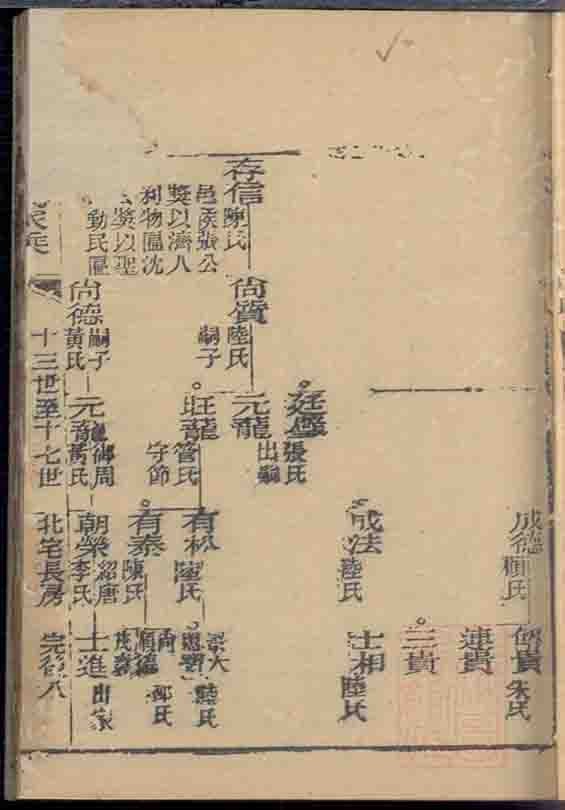 存信
陳氏
邑侯張公
獎以濟人
利物匾沈
獎以聖
動民匾
尚質
陸氏
嗣子
尚德
嗣子
黃氏
廷璧
張氏
元龍
出嗣
旺龍
管氏
守節
元
御周
黃氏
成德
顧氏
成法
陸氏
有松
陸氏
有泰
陳氏
朝榮
紹唐
李氏
貴
朱氏
連貴
三貴
士相
陸氏
大
陸氏
順德
尚
士進
出家
十三世至十七世
北宅長房